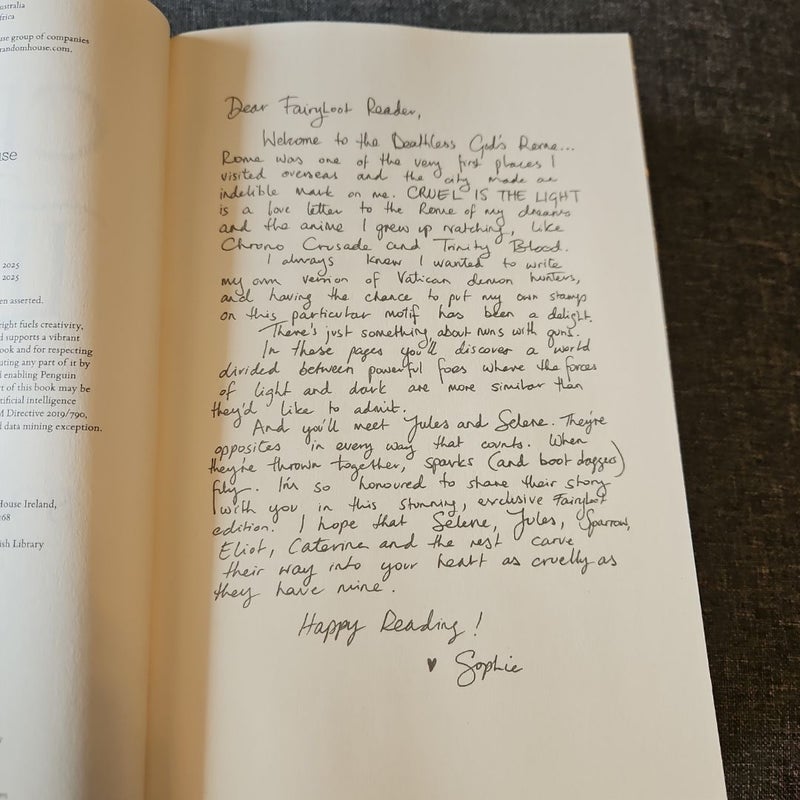 ustralia
frica
use group of companies
randomhouse.com.
use
2025
2025
en asserted.
right fuels creativity,
d supports a vibrant
ook and for respecting
uting any part of it by
d enabling Penguin
rt of this book may be
tificial intelligence
M Directive 2019/790,
d data mining exception.
House Ireland,
68
ish Library
Dear FairyLoot Reader,
Welcome to the Deathless God's Rome...
Rome was one of the very first places I
visited overseas and the city made an
indelible mark on me. CRUEL IS THE LIGHT
is a love letter to the Rome of my dreams
and the anime I grew up watching, like
Chrono Crusade and Trinity Blood.
I always knew I wanted to write
my own version of Vatican demon hunters,
and having the chance to put my own stamp
on this particular motif has been a delight.
There's just something about nuns with guns.
In these pages you'll discover a world
divided between powerful foes where the forces
of light and dark are more similar than
they'd like to admit.
And you'll meet Jules and Selene. They're
opposites in every way that counts. When
they're thrown together, sparks (and boot daggers)
fly. I'm so honoured to share their story
with you in this stunning, exclusive FairyLoot
edition. I hope that Selene, Jules, Sparrow,
Eliot, Caterina and the rest carve
their way into your heart as cruelly as
they have mine.
Happy Reading!
♥ Sophie